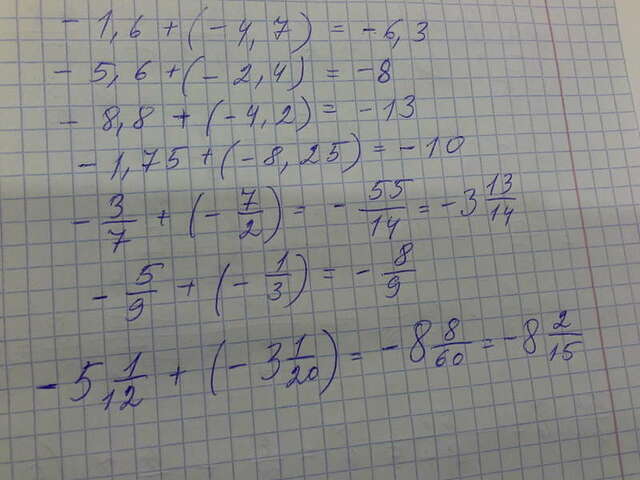 - 1,6 + (- 4,7) = -6,3
- 5,6 + (- 2,4) = -8
- 8,8 + (-4,2) = -13
- 1,75 + (-8,25) = -10
- 3/7 + (- 7/2) = - 55/14 = -3 13/14
- 5/9 + (- 1/3) = - 8/9
- 5 1/12 + (- 3 1/20) = - 8 8/60 = -8 2/15